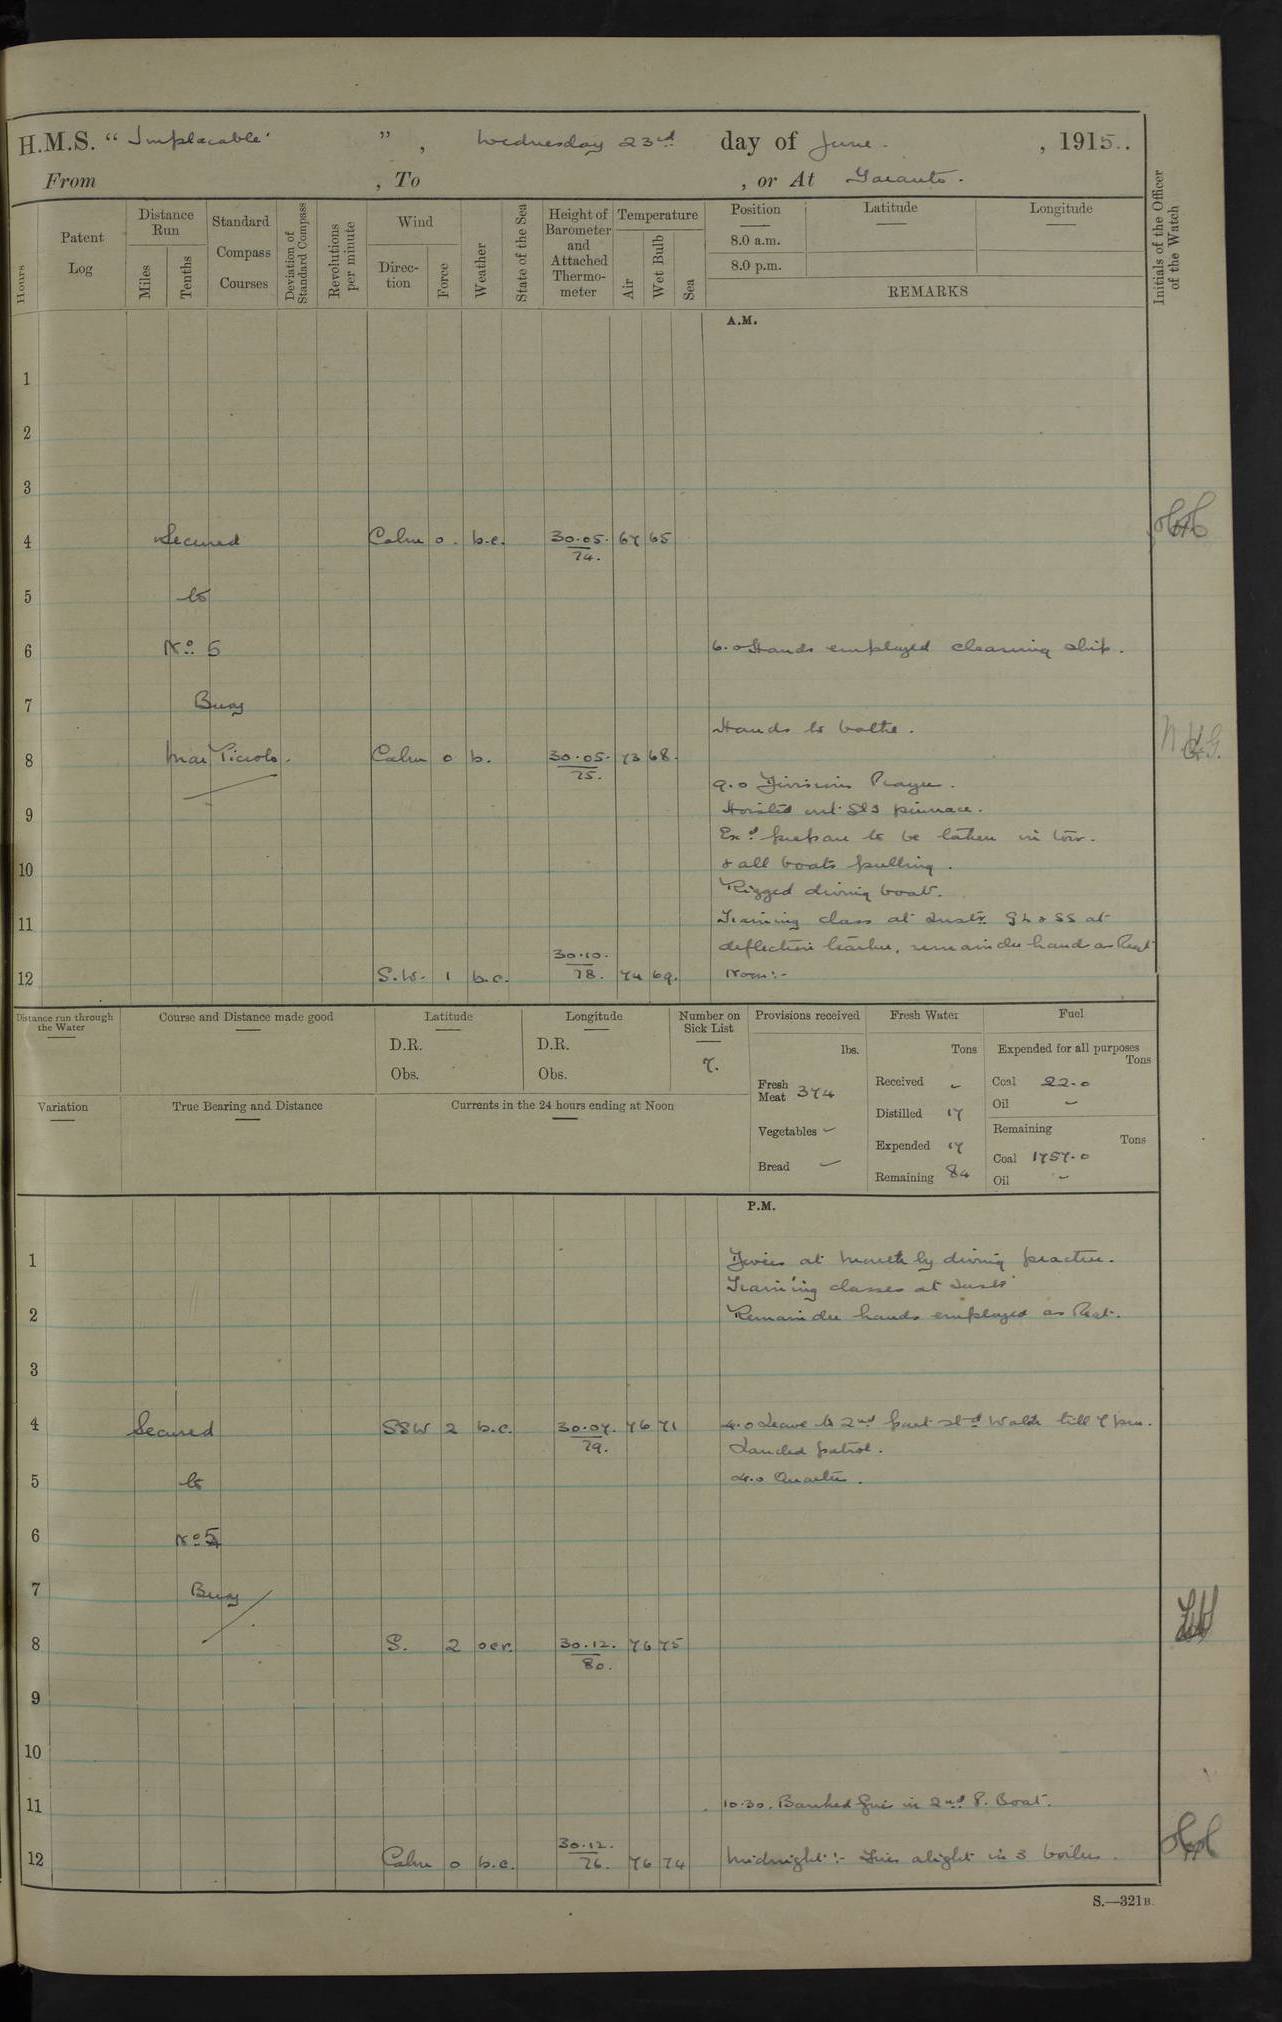 H.M.S. "Implacable", Wednesday 23rd day of June, 1915.
From , To , or At Taranto.
Hours
Patent Log
Distance Run
Miles
Tenths
Standard Compass Courses
Deviation of Standard Compass
Revolutions per minute
Wind
Direction
Force
Weather
State of the Sea
Height of Barometer and Attached Thermometer
Temperature
Air
Wet Bulb
Sea
Position
8.0 a.m.
8.0 p.m.
Latitude
Longitude
REMARKS
Initials of the Officer of the Watch
A.M.
1
2
3
4 Secured Calm 0. b.c. 30.05. 67 65
74.
5 to
6 No. 5 6.0 Hands employed cleaning ship.
7 Buoy
Hands to bathe.
8 Mar Piccolo. Calm 0 b. 30.05. 73 68.
75.
9.0 Divisions Prayers.
9 Hoisted out Stb pinnace.
Exd prepare to be taken in tow.
10 & all boats pulling.
Rigged diving boat.
11 Training class at Instn. GL & SS at
deflection teacher, remainder hands as Reqt
30.10.
12 S.W. 1 b.c. 78. 74 69. Noon:-
Distance run through the Water
Course and Distance made good
Latitude
D.R.
Obs.
Longitude
D.R.
Obs.
Number on Sick List
7.
Provisions received
lbs.
Fresh Meat 374
Vegetables -
Bread -
Fresh Water
Tons
Received -
Distilled 17
Expended 17
Remaining 84
Fuel
Expended for all purposes
Tons
Coal 22.0
Oil -
Remaining
Tons
Coal 1757.0
Oil -
Variation
True Bearing and Distance
Currents in the 24 hours ending at Noon
P.M.
1 Divers at monthly diving practice.
Training classes at Instn
2 Remainder hands employed as Reqt.
3
4 Secured SSW 2 b.c. 30.07. 76 71 4.0 Leave to 2nd part Stbd Watch till 7 pm.
79. Landed patrol.
5 to 4.0 Quarters.
6 No. 5
7 Buoy
8 S. 2 ocr. 30.12. 76 75
80.
9
10
11 10.30. Banked fires in 2nd P. Boat.
30.12.
12 Calm 0 b.c. 76. 76 74 Midnight:- Fires alight in 3 boilers.
S.—321B.